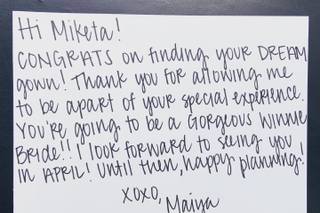 Hi Miketa!
CONGRATS on finding your DREAM
gown! Thank you for allowing me
to be apart of your special experience.
You're going to be a GORGEOUS WINNIE
Bride!! I look forward to seeing you
IN APRIL! Until then, happy planning!
XOXO,
Maiya